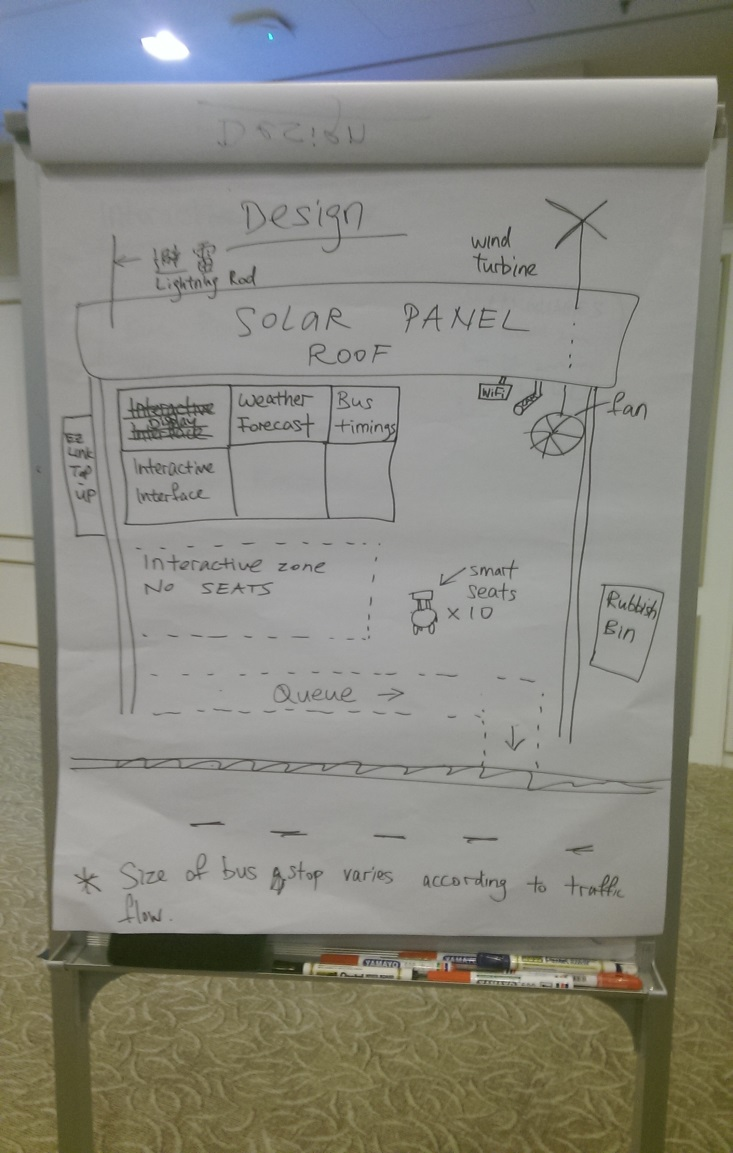 Design
wind
turbine
Lightning Rod
SOLAR PANEL
ROOF
WiFi
fan
EZ
Link
Top
up
Interactive
Display
Interface
Weather
Forecast
Bus
timings
Interactive
Interface
Interactive zone
NO SEATS
smart
seats
x 10
Rubbish
Bin
Queue →
* Size of bus stop varies according to traffic
flow.
YAMAYO
YAMA
Pentel
YAMAYO